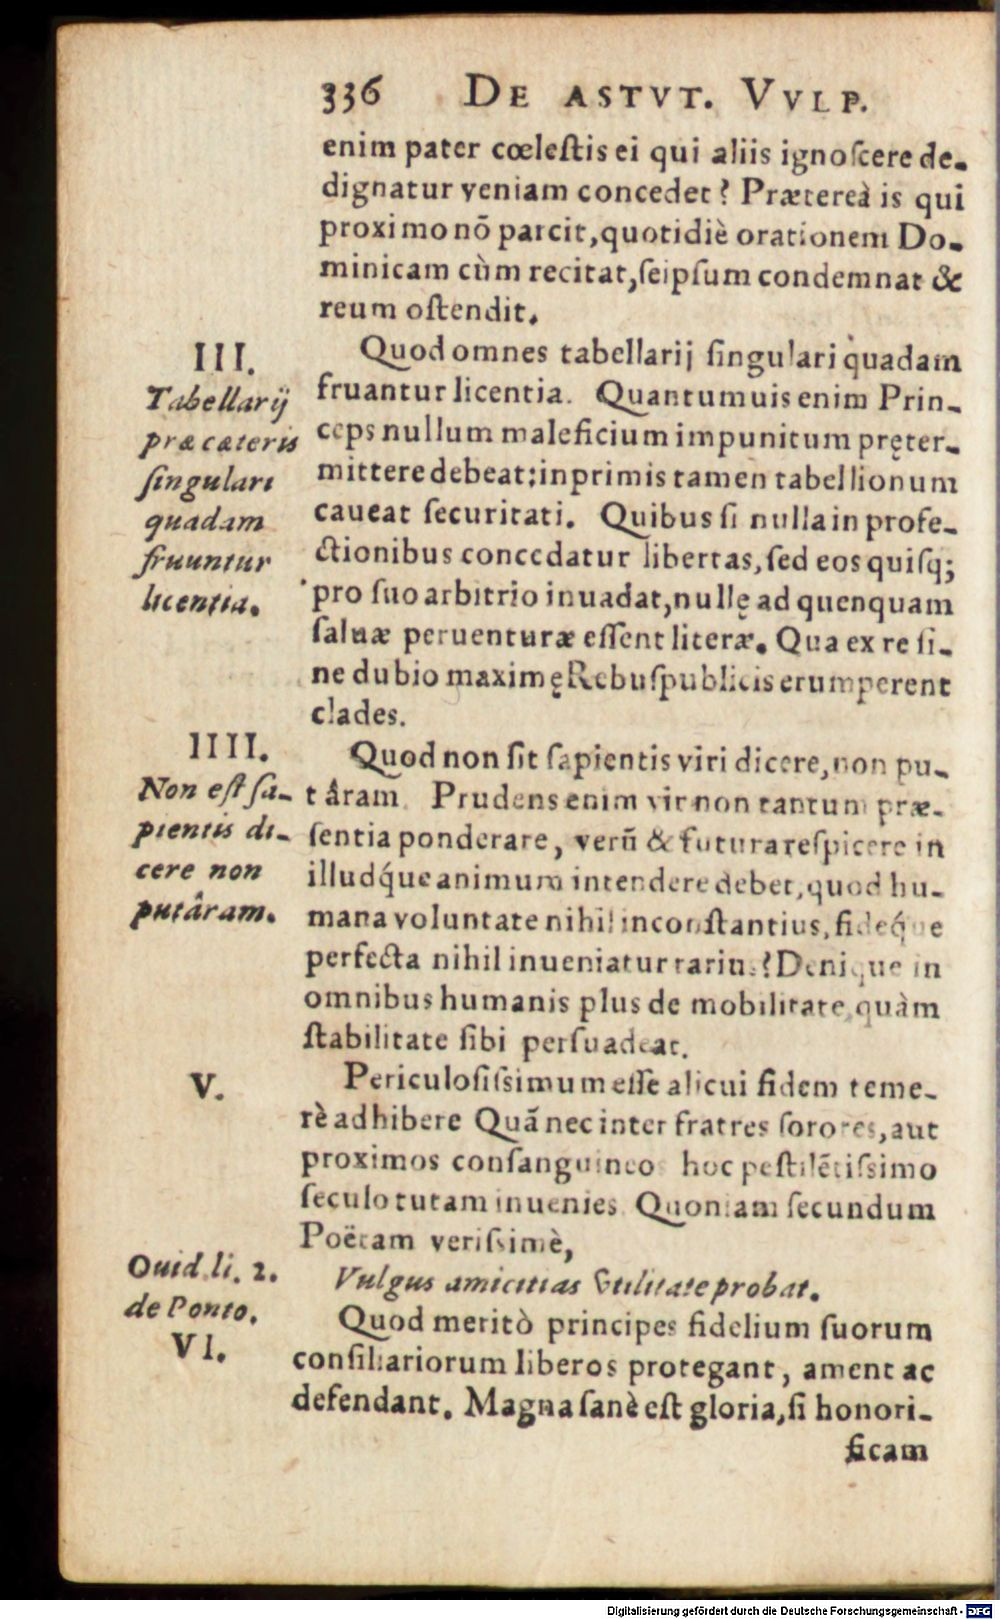 336 DE ASTVT. VVLP.
enim pater cœleſtis ei qui aliis ignoſcere de-
dignatur veniam concedet? Prætereà is qui
proximo nō parcit, quotidiè orationem Do-
minicam cùm recitat, ſeipſum condemnat &
reum oſtendit.
III.
Tabellarij
præ cæteris
ſingulari
quadam
fruuntur
licentia.
Quod omnes tabellarij ſingulari quadam
fruantur licentia. Quantumuis enim Prin-
ceps nullum maleficium impunitum pręter-
mittere debeat; inprimis tamen tabellionum
caueat ſecuritati. Quibus ſi nulla in profe-
ctionibus concedatur libertas, ſed eos quiſq;
pro ſuo arbitrio inuadat, nullę ad quenquam
ſaluæ peruenturæ eſſent literæ. Qua ex re ſi-
ne dubio maximę Rebuſpublicis erumperent
clades.
IIII.
Non eſt ſa-
pientis di-
cere non
putâram.
Quod non ſit ſapientis viri dicere, non pu-
târam. Prudens enim vir non tantum præ-
ſentia ponderare, verũ & futura reſpicere in
illudq́ue animum intendere debet, quod hu-
mana voluntate nihil inconſtantius, fideq́ue
perfecta nihil inueniatur rarius? Denique in
omnibus humanis plus de mobilitate, quàm
ſtabilitate ſibi perſuadeat.
V.
Periculoſiſsimum eſſe alicui fidem teme-
rè adhibere Quã nec inter fratres ſorores, aut
proximos conſanguineos hoc peſtilẽtiſsimo
ſeculo tutam inuenies. Quoniam ſecundum
Poëtam veriſsimè,
Ouid. li. 2.
de Ponto.
Vulgus amicitias vtilitate probat.
VI.
Quod meritò principes fidelium ſuorum
conſiliariorum liberos protegant, ament ac
defendant. Magna ſanè eſt gloria, ſi honori-
ficam
Digitalisierung gefördert durch die Deutsche Forschungsgemeinschaft - DFG